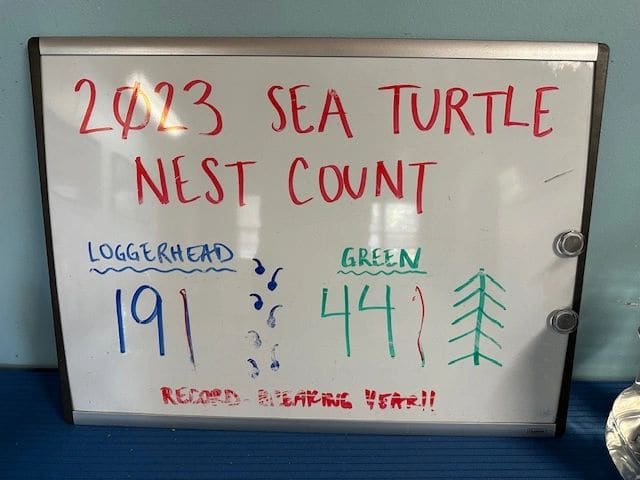 2023 SEA TURTLE
NEST COUNT
LOGGERHEAD GREEN
191 44
RECORD-BREAKING YEAR!!